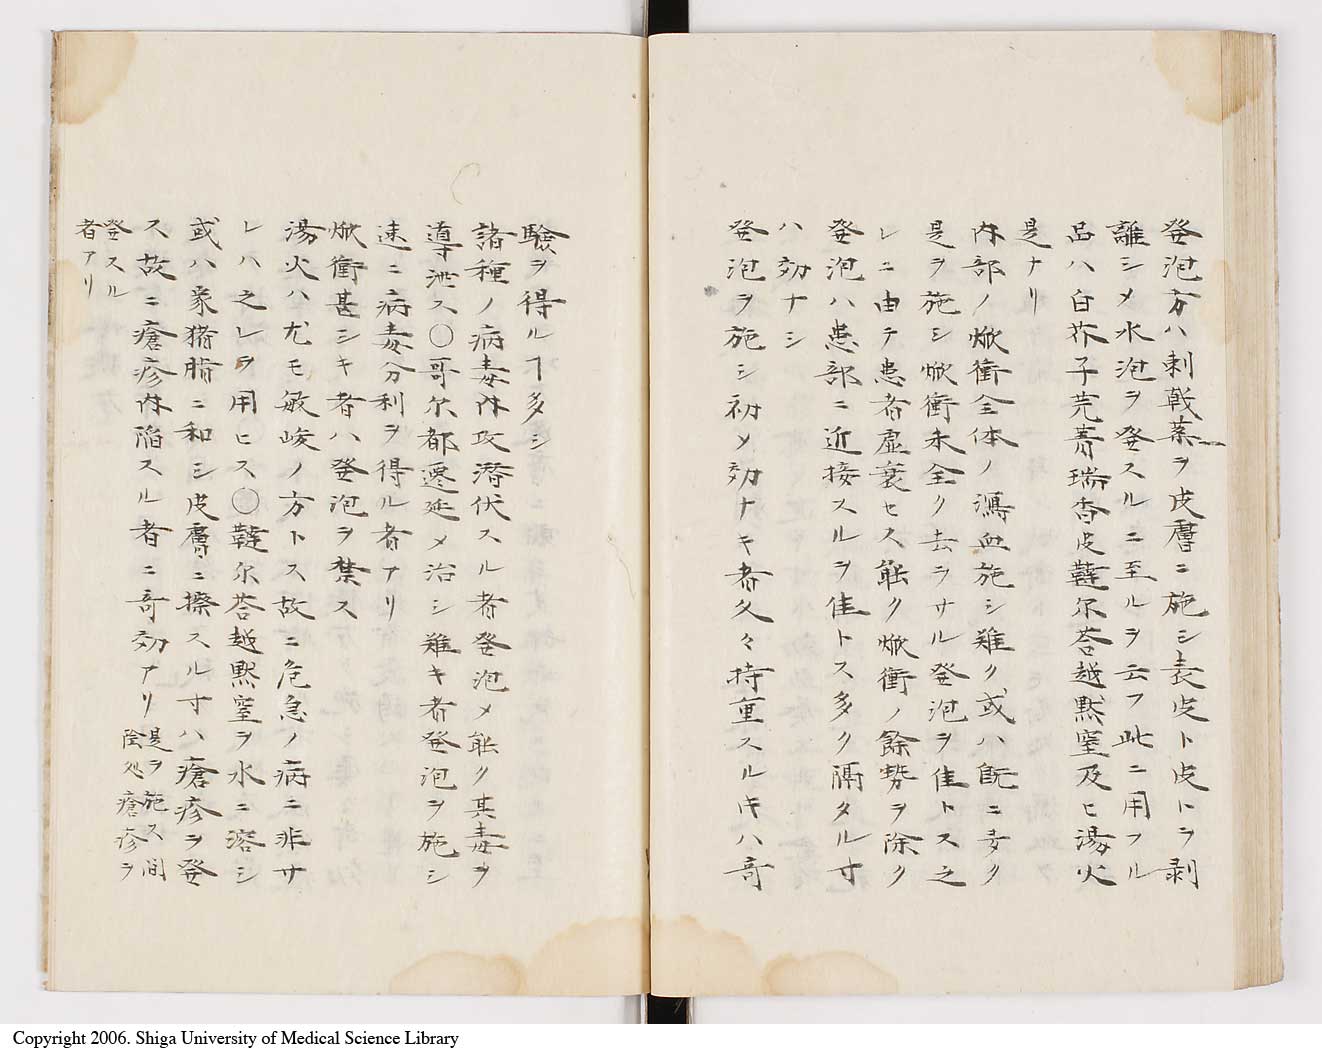 発泡方ハ刺戟薬ヲ皮膚ニ施シ表皮ト皮トヲ剥
離シメ水泡ヲ発スルニ至ルヲ云フ此ニ用フル
品ハ白芥子芫菁瑞香皮韃尓荅越黙窒及ヒ湯火
是ナリ
内部ノ焮衝全体ノ瀉血施シ難ク或ハ既ニ多ク
是ヲ施シ焮衝未全ク去ラサル発泡ヲ佳トス之
レニ由テ患者虚衰セス能ク焮衝ノ餘勢ヲ除ク
発泡ハ患部ニ近接スルヲ佳トス多ク隔タル寸
ハ効ナシ
発泡ヲ施シ初メ効ナキ者久々持重スルキハ奇
驗ヲ得ルヿ多シ
諸種ノ病毒内攻潜伏スル者発泡メ能ク其毒ヲ
導泄ス〇哥尓都遷延メ治シ難キ者発泡ヲ施シ
速ニ病毒分利ヲ得ル者アリ
焮衝甚シキ者ハ発泡ヲ禁ス
湯火ハ尤モ敏峻ノ方トス故ニ危急ノ病ニ非サ
レハ之レヲ用ヒス〇韃尓荅越黙窒ヲ水ニ溶シ
或ハ豕猪脂ニ和シ皮膚ニ擦スル寸ハ瘡疹ヲ発
ス故ニ瘡疹内陥スル者ニ奇効アリ是ヲ施ス間
陰処瘡疹ヲ
発スル
者アリ
Copyright 2006. Shiga University of Medical Science Library